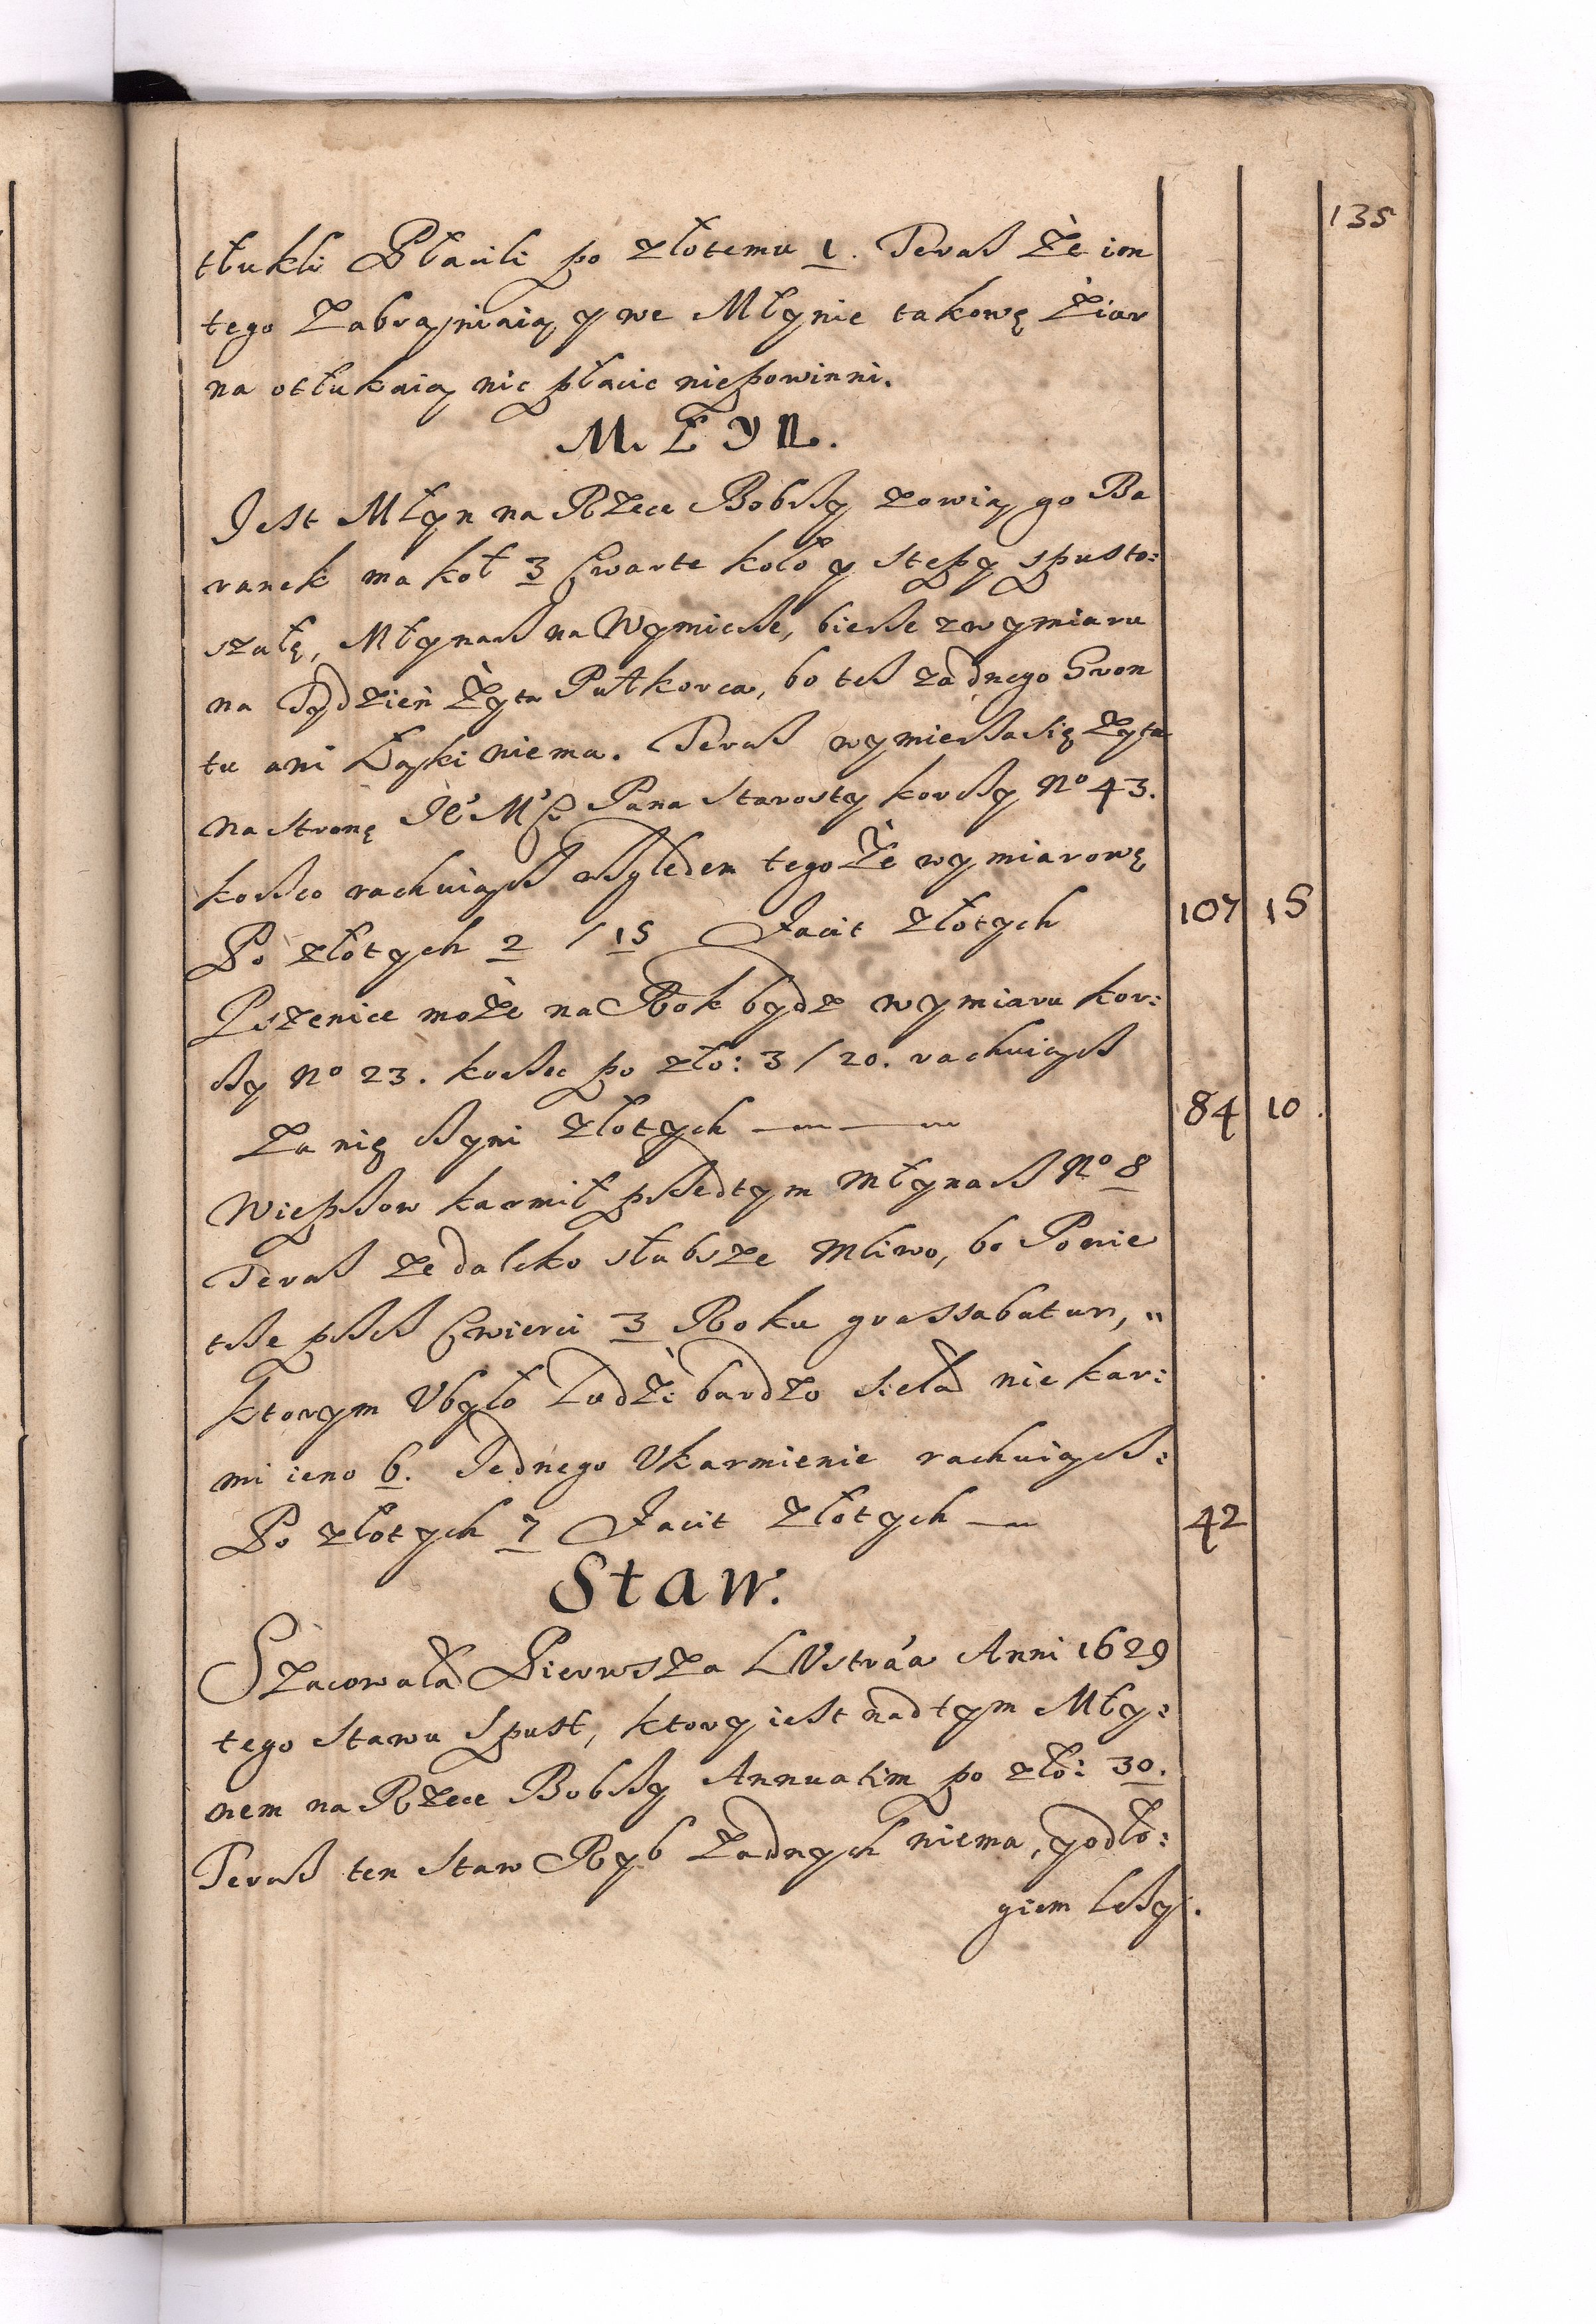 135
tłukli Płacili po złotemu 1. Teraß że im
tego zabraniaią, y we Młynie takowę Ziar
na otłukaią nic płacic niepowinni.
MŁYN.
Jest Młyn na Rzece Bobrßy zowią go Ba
ranek ma koł 3 Czwarte koło y stępy spusto:
szałę, Młynarß na Wymierße, bierße z wymiaru
na Tydzień Żyta Pułkorca, bo też żadnego Gron
tu ani Łąki niema. Teraß wymierßa się Żyta
na stronę Je° M° P Pana Starosty korcßy N° 43.
korßec rachuiącß względem tego że wymiarowę
Po złotych 2 / 15 Facit złotych 107 15
Pszenice może na Rok bydz wymiaru kor:
ßy N° 23. korßec po zło: 3 / 20. rachuiącß
za nię cßyni złotych 84 10.
Wieprßow karmił przedtym Młynarß N° 8
Teraß że daleko słabsze mliwo, bo Powie
trße przeß Czwierci 3 Roku grassabatur, "
ktorym Ubyło Ludźi bardzo siełá nie kar:
mi ieno 6. Jednego Ukarmienie rachuiącß:
Po złotych 7 Facit złotych 42
Staw.
Szacowałá Pierwsza LVstráa Anni 1629
tego Stawu Spust, ktory iest nad tym Mły:
nem na Rzece Bobrßy Annuatim po zło: 30.
Teraß ten Staw Ryb żadnych niema, y odło:
giem leßy.